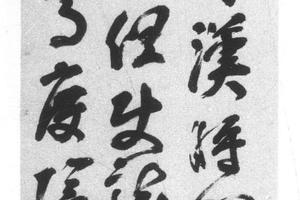 漢時
但使龍
馬度陰